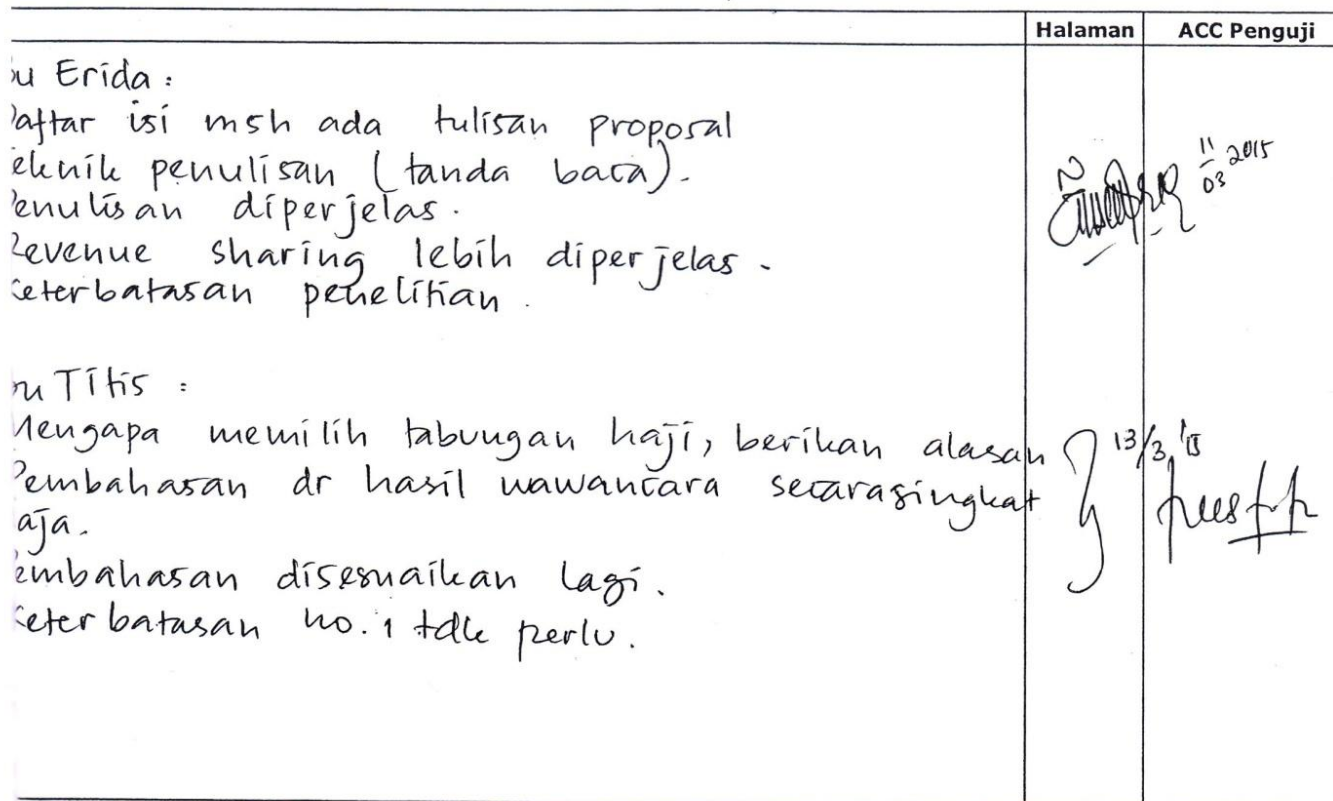 Halaman ACC Penguji
u Erida :
aftar isi msh ada tulisan proposal
eknik penulisan (tanda baca).
enulisan diperjelas.
Revenue sharing lebih diperjelas.
eterbatasan penelitian.
11/03 2015
u Titis :
Mengapa memilih tabungan haji, berikan alasan
Pembahasan dr hasil wawancara secara singkat
aja.
embahasan disesuaikan lagi.
eterbatasan no. 1 tdk perlu.
13/3 '15